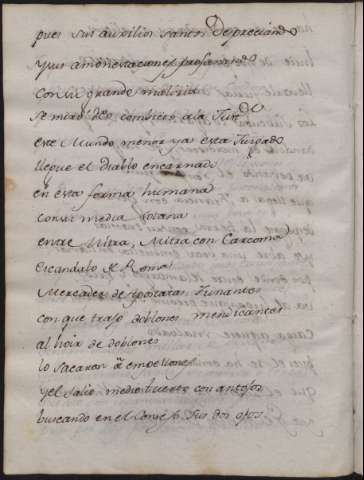 pues sus auxilios santos Depreciando
y sus amonestaciones profanando
con su grande malicia
se miró
este Mundo menor ya esta Turbado
llegue el Diablo encarnado
en esta forma humana
con su media sotana
entre Mitra, Mitra con Carcoma
Escandalo de Roma
Mercader de
con que trajo doblones mendicantes
al hoir de doblones
lo sacaron â empellones
y el salio medio tuerto con antojos
buscando en el Consejo sus dos ojos